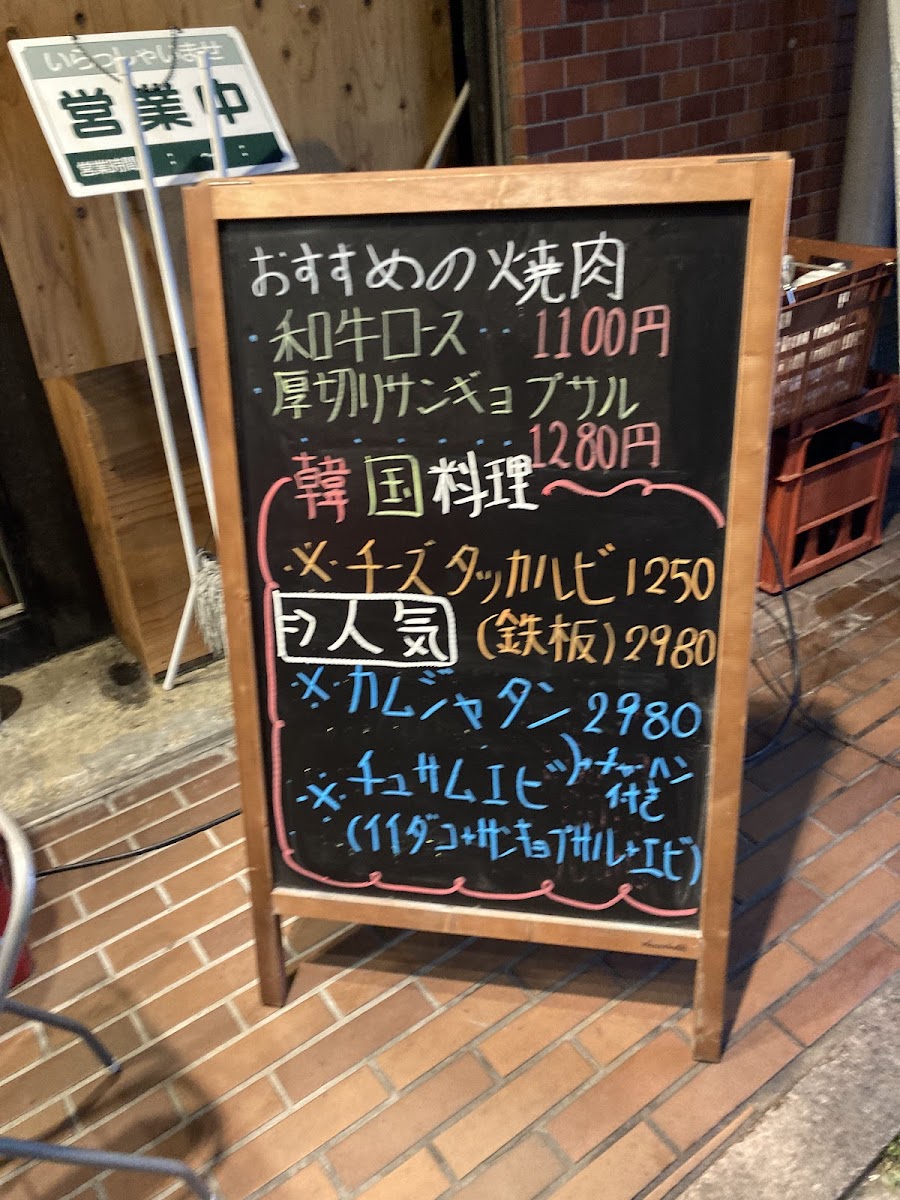 いらっしゃいませ
営業中
営業時間 : ～ :
おすすめの焼肉
・和牛ロース・・1100円
・厚切りサンギョプサル
・・・・・・1280円
韓国料理
※チーズタッカルビ1250
⇒人気 (鉄板)2980
※カムジャタン2980
※チュサムエビ
チャーハン
付き
(イイダコ+サンギョプサル+エビ)